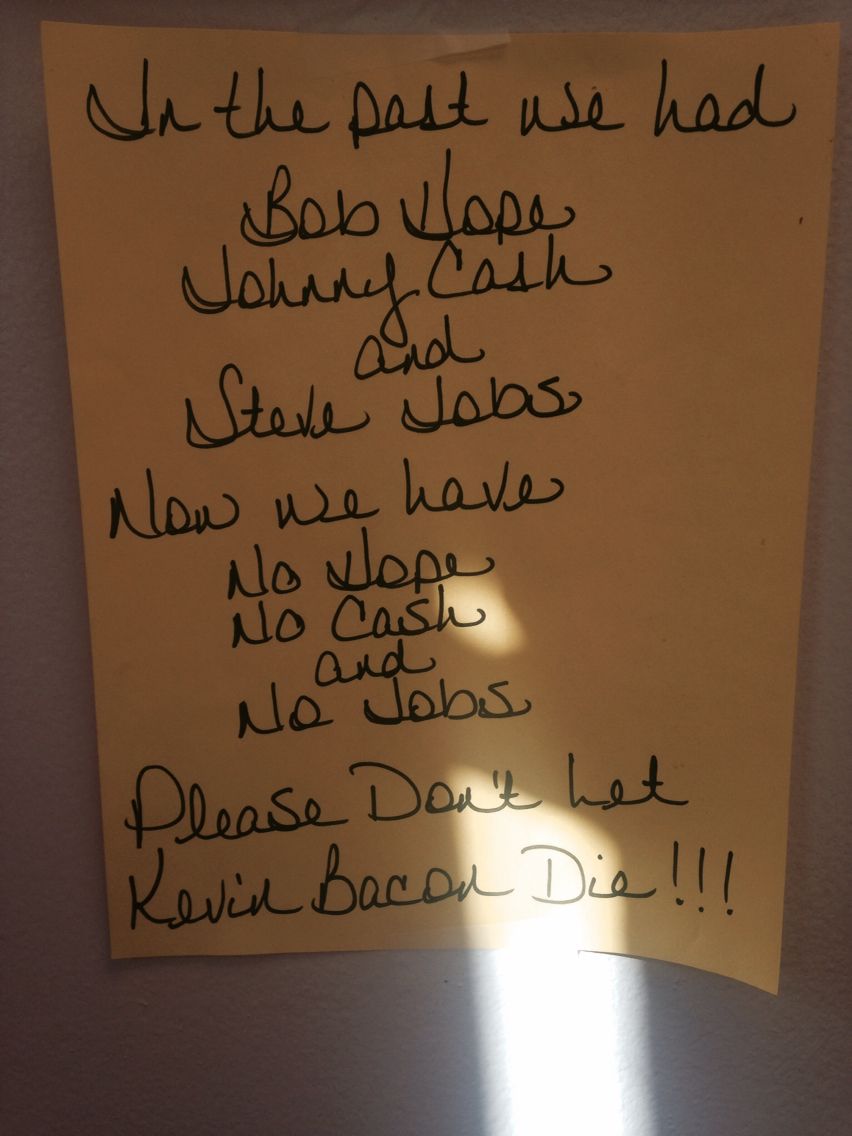 In the past we had
Bob Hope
Johnny Cash
and
Steve Jobs
Now we have
No Hope
No Cash
and
No Jobs
Please Don't Let
Kevin Bacon Die!!!